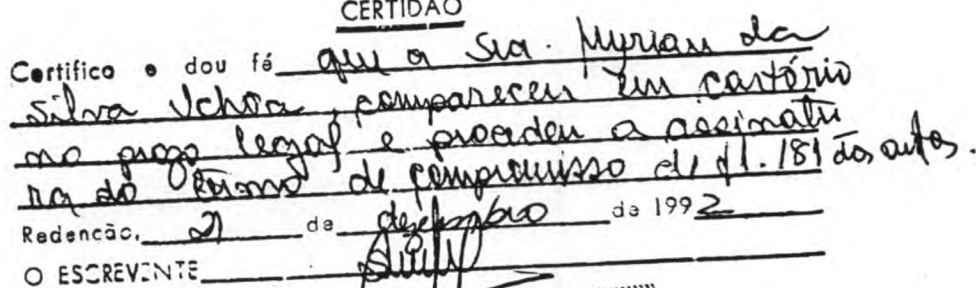 CERTIDÃO
Certifico e dou fé que a Sra. Myrian da
Silva Uchôa, compareceu em cartório
no prazo legal e procedeu a assinatu
ra do têrmo de compromisso de fl. 181 dos autos.
Redenção, 21 de dezembro de 1992
O ESCREVENTE